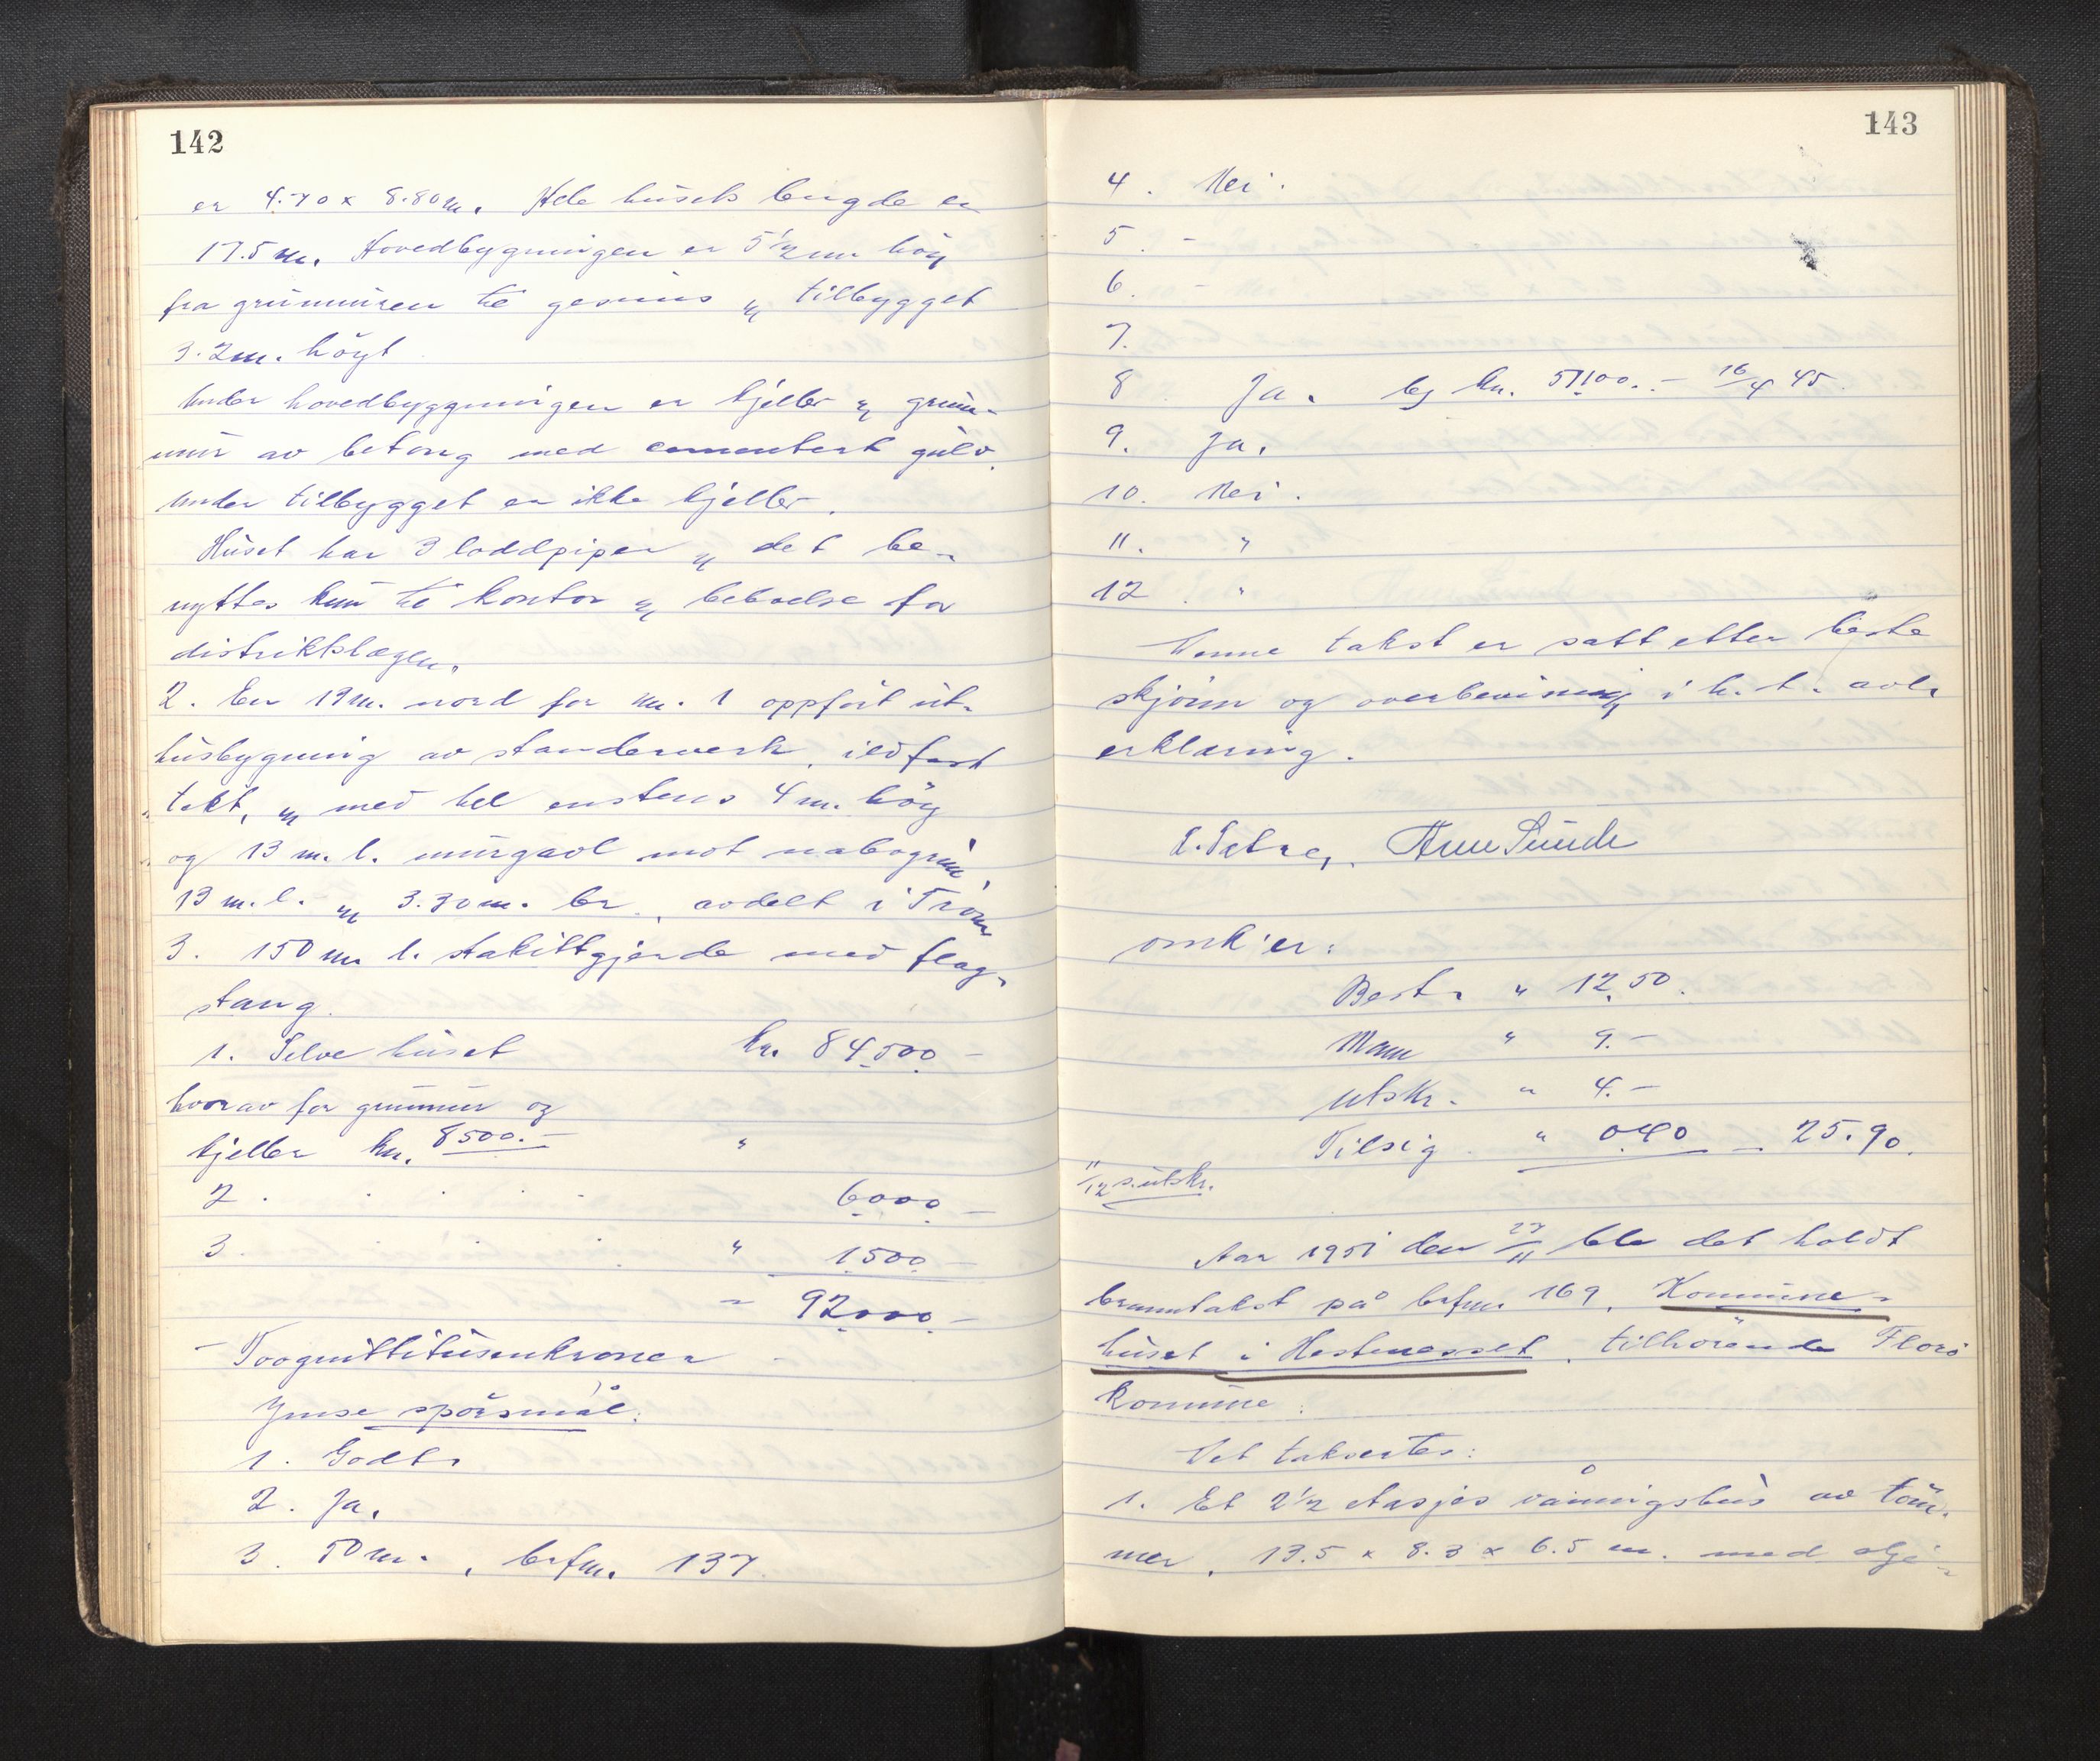 142
er 4.70 x 8.80 m. Hele husets lengde er
17.5 m. Hovedbygningen er 5½ m høy
fra grunmuren til gesims og tilbygget
3.2 m. høyt
Under hovedbyggningen er kjeller og grun-
mur av betong med cementert gulv.
Under tilbygget er ikke kjeller.
Huset har 3 loddpiper og det be-
nyttes kun til kontor og beboelse for
distriktslægen.
2. En 19 m. nord for nr. 1 oppført ut-
husbygning av standerverk, ildfast
tekt, og med hel enstens 4 m. høy
og 13 m. l. murgavl mot nabogrun,
13 m. l. og 3.30 m. br., avdelt i 3 rom
3. 150 m l. stakittgjerde med flag-
stang.
1. Selve huset kr. 84500 -
hvorav for grunmur og
kjeller kr. 8500.- "
2. . . . . 6000 -
3. . . . " 1500 -
" 92000 -
- Toognittitusenkroner -
Ymse spørsmål:
1. Godt.
2. Ja.
3. 50 m. , brfnr. 137.
143
4. Nei.
5. -
6. -
7.
8 Ja. kr. 51100.- 16/4 45.
9. Ja.
10. Nei.
11. "
12. "
Denne takst er satt etter beste
skjønn og overbevisning i h. t. avl.
erklæring.
Arne Sunde
omk'er:
Best. " 12.50.
Mann " 9.-
utskr. " 4.-
Tilsig. " 040 - 25.90.
11/12 s. utskr.
Aar 1951 den 27/11 ble det holdt
branntakst på brfnr 169, Kommune-
huset i Hestenesset, tilhørende Florø
komune.
Det takseres:
1. Et 2½ etasjes våningshus av töm-
mer, 13.5 x 8.3 x 6.5 m. med olje-